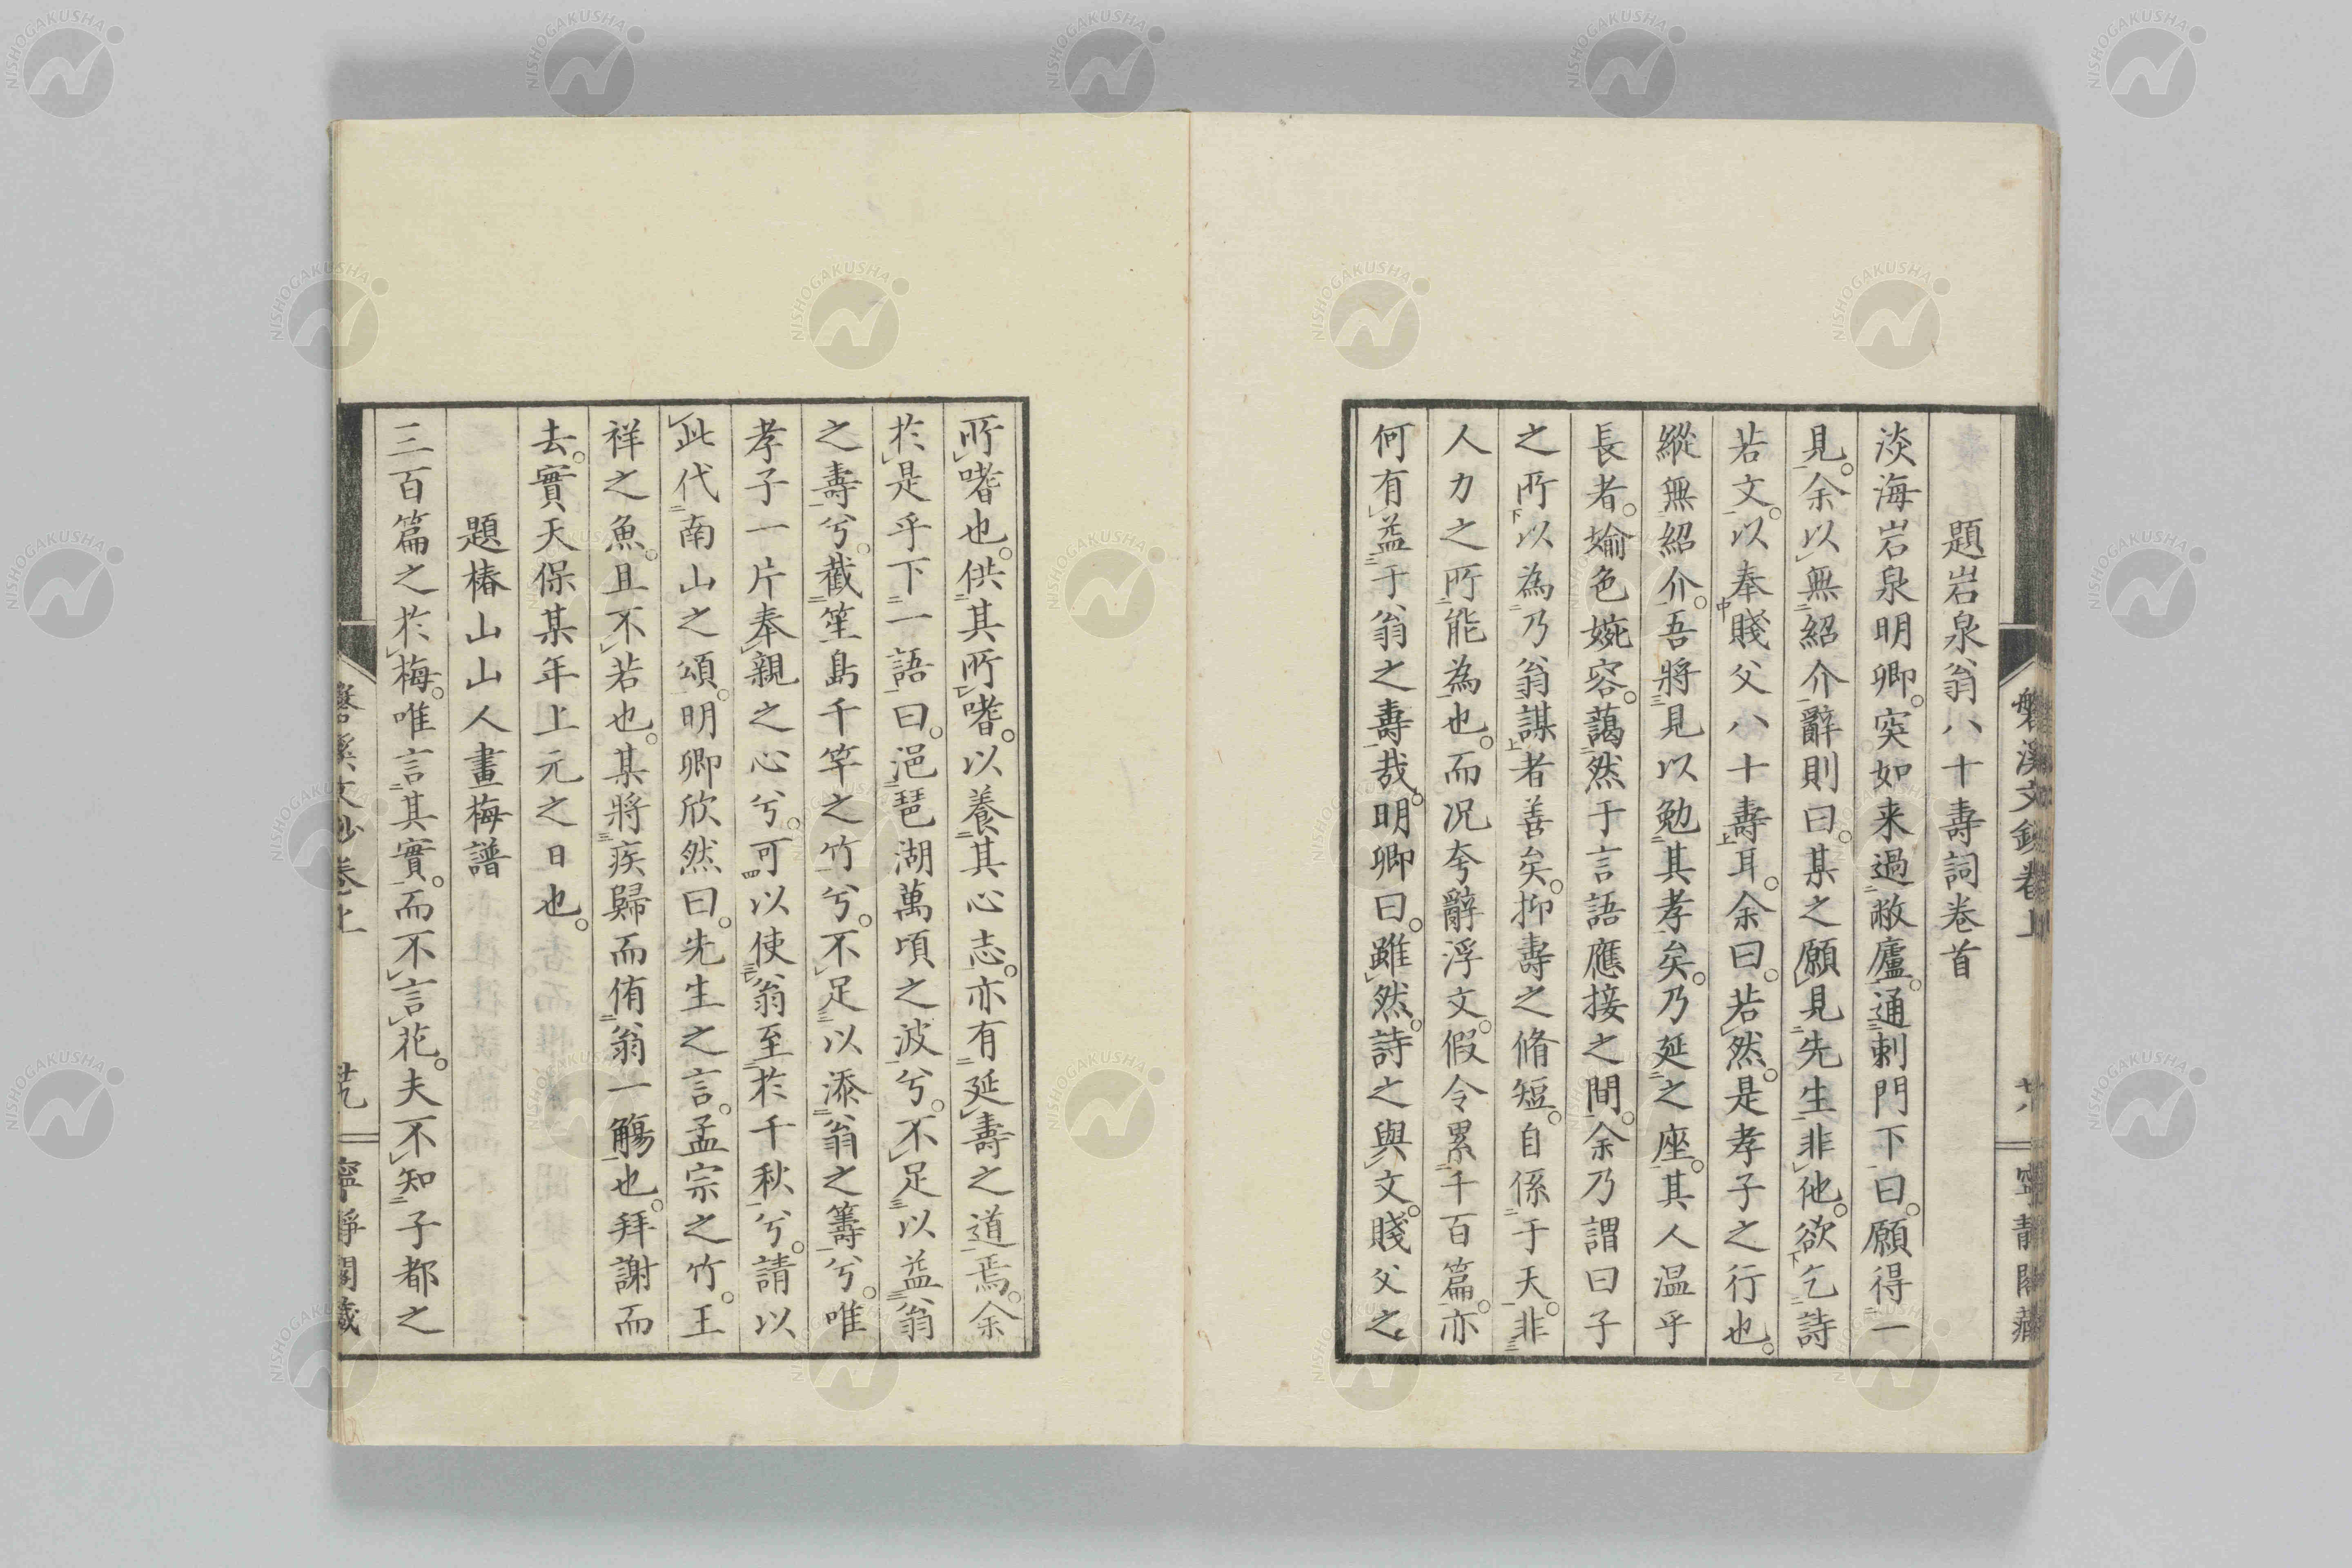 題岩泉翁八十壽詞卷首
淡海岩泉明卿。突如来過敝廬。通刺門下曰。願得一
見。余以無紹介辭則曰。某之願見先生非他。欲乞詩
若文。以奉賤父八十壽耳。余曰。若然。是孝子之行也。
縱無紹介。吾將見以勉其孝矣。乃延之座。其人温乎
長者。婾色婉容。藹然于言語應接之間。余乃謂曰子
之所以為乃翁謀者善矣。抑壽之脩短。自係于天。非
人力之所能為也。而况夸辭浮文。假令累千百篇。亦
何有益于翁之壽哉。明卿曰。雖然。詩之與文。賤父之
磐溪文鈔卷上
廿八
寧靜閣藏
所嗜也。供其所嗜。以養其心志。亦有延壽之道焉。余
於是乎下一語曰。浥琶湖萬頃之波兮。不足以益翁
之壽兮。截笙島千竿之竹兮。不足以添翁之籌兮。唯
孝子一片奉親之心兮。可以使翁至於千秋兮。請以
此代南山之頌。明卿欣然曰。先生之言。孟宗之竹。王
祥之魚。且不若也。某將疾歸而侑翁一觴也。拜謝而
去。實天保某年上元之日也。
題椿山山人畫梅譜
三百篇之於梅。唯言其實。而不言花。夫不知子都之
磐溪文鈔卷上
廿九
寧靜閣藏
NISHOGAKUSHA